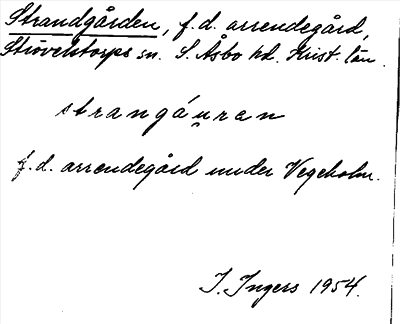 Strandgården, f.d. arrendegård,
Strövelstorps sn. S. Åsbo hd. Krist. län.
strangáu̯ren
f.d. arrendegård under Vegeholm.
I. Ingers 1954.